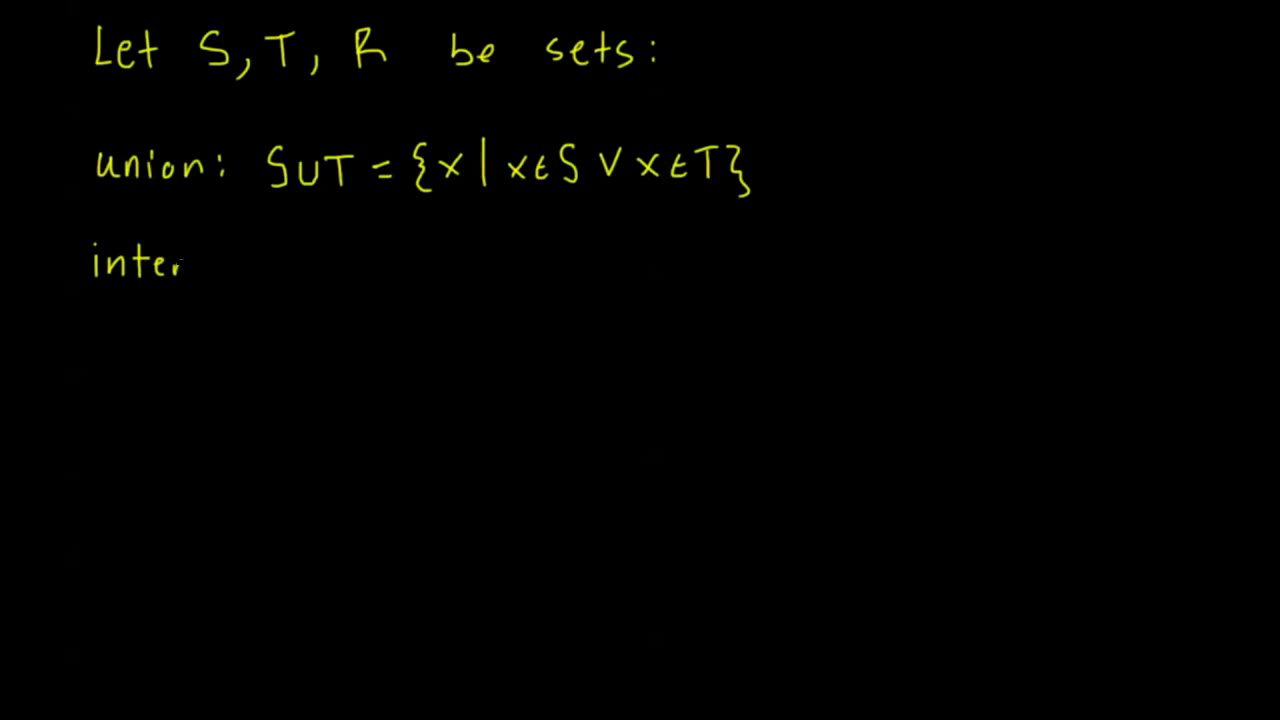 Let S, T, R be sets:
union: S∪T = {x | x∈S ∨ x∈T}
inter